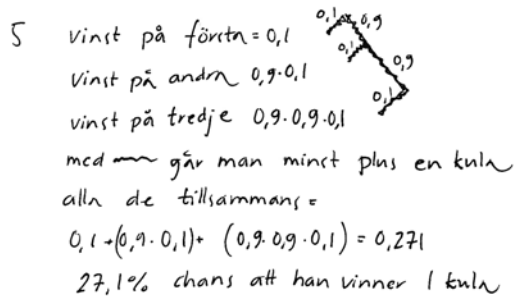 5 vinst på första = 0,1
0,1 0,9
0,1
0,9
0,1
vinst på andra 0,9·0,1
vinst på tredje 0,9·0,9·0,1
med går man minst plus en kula
alla de tillsammans =
0,1 + (0,9·0,1) + (0,9·0,9·0,1) = 0,271
27,1% chans att han vinner 1 kula